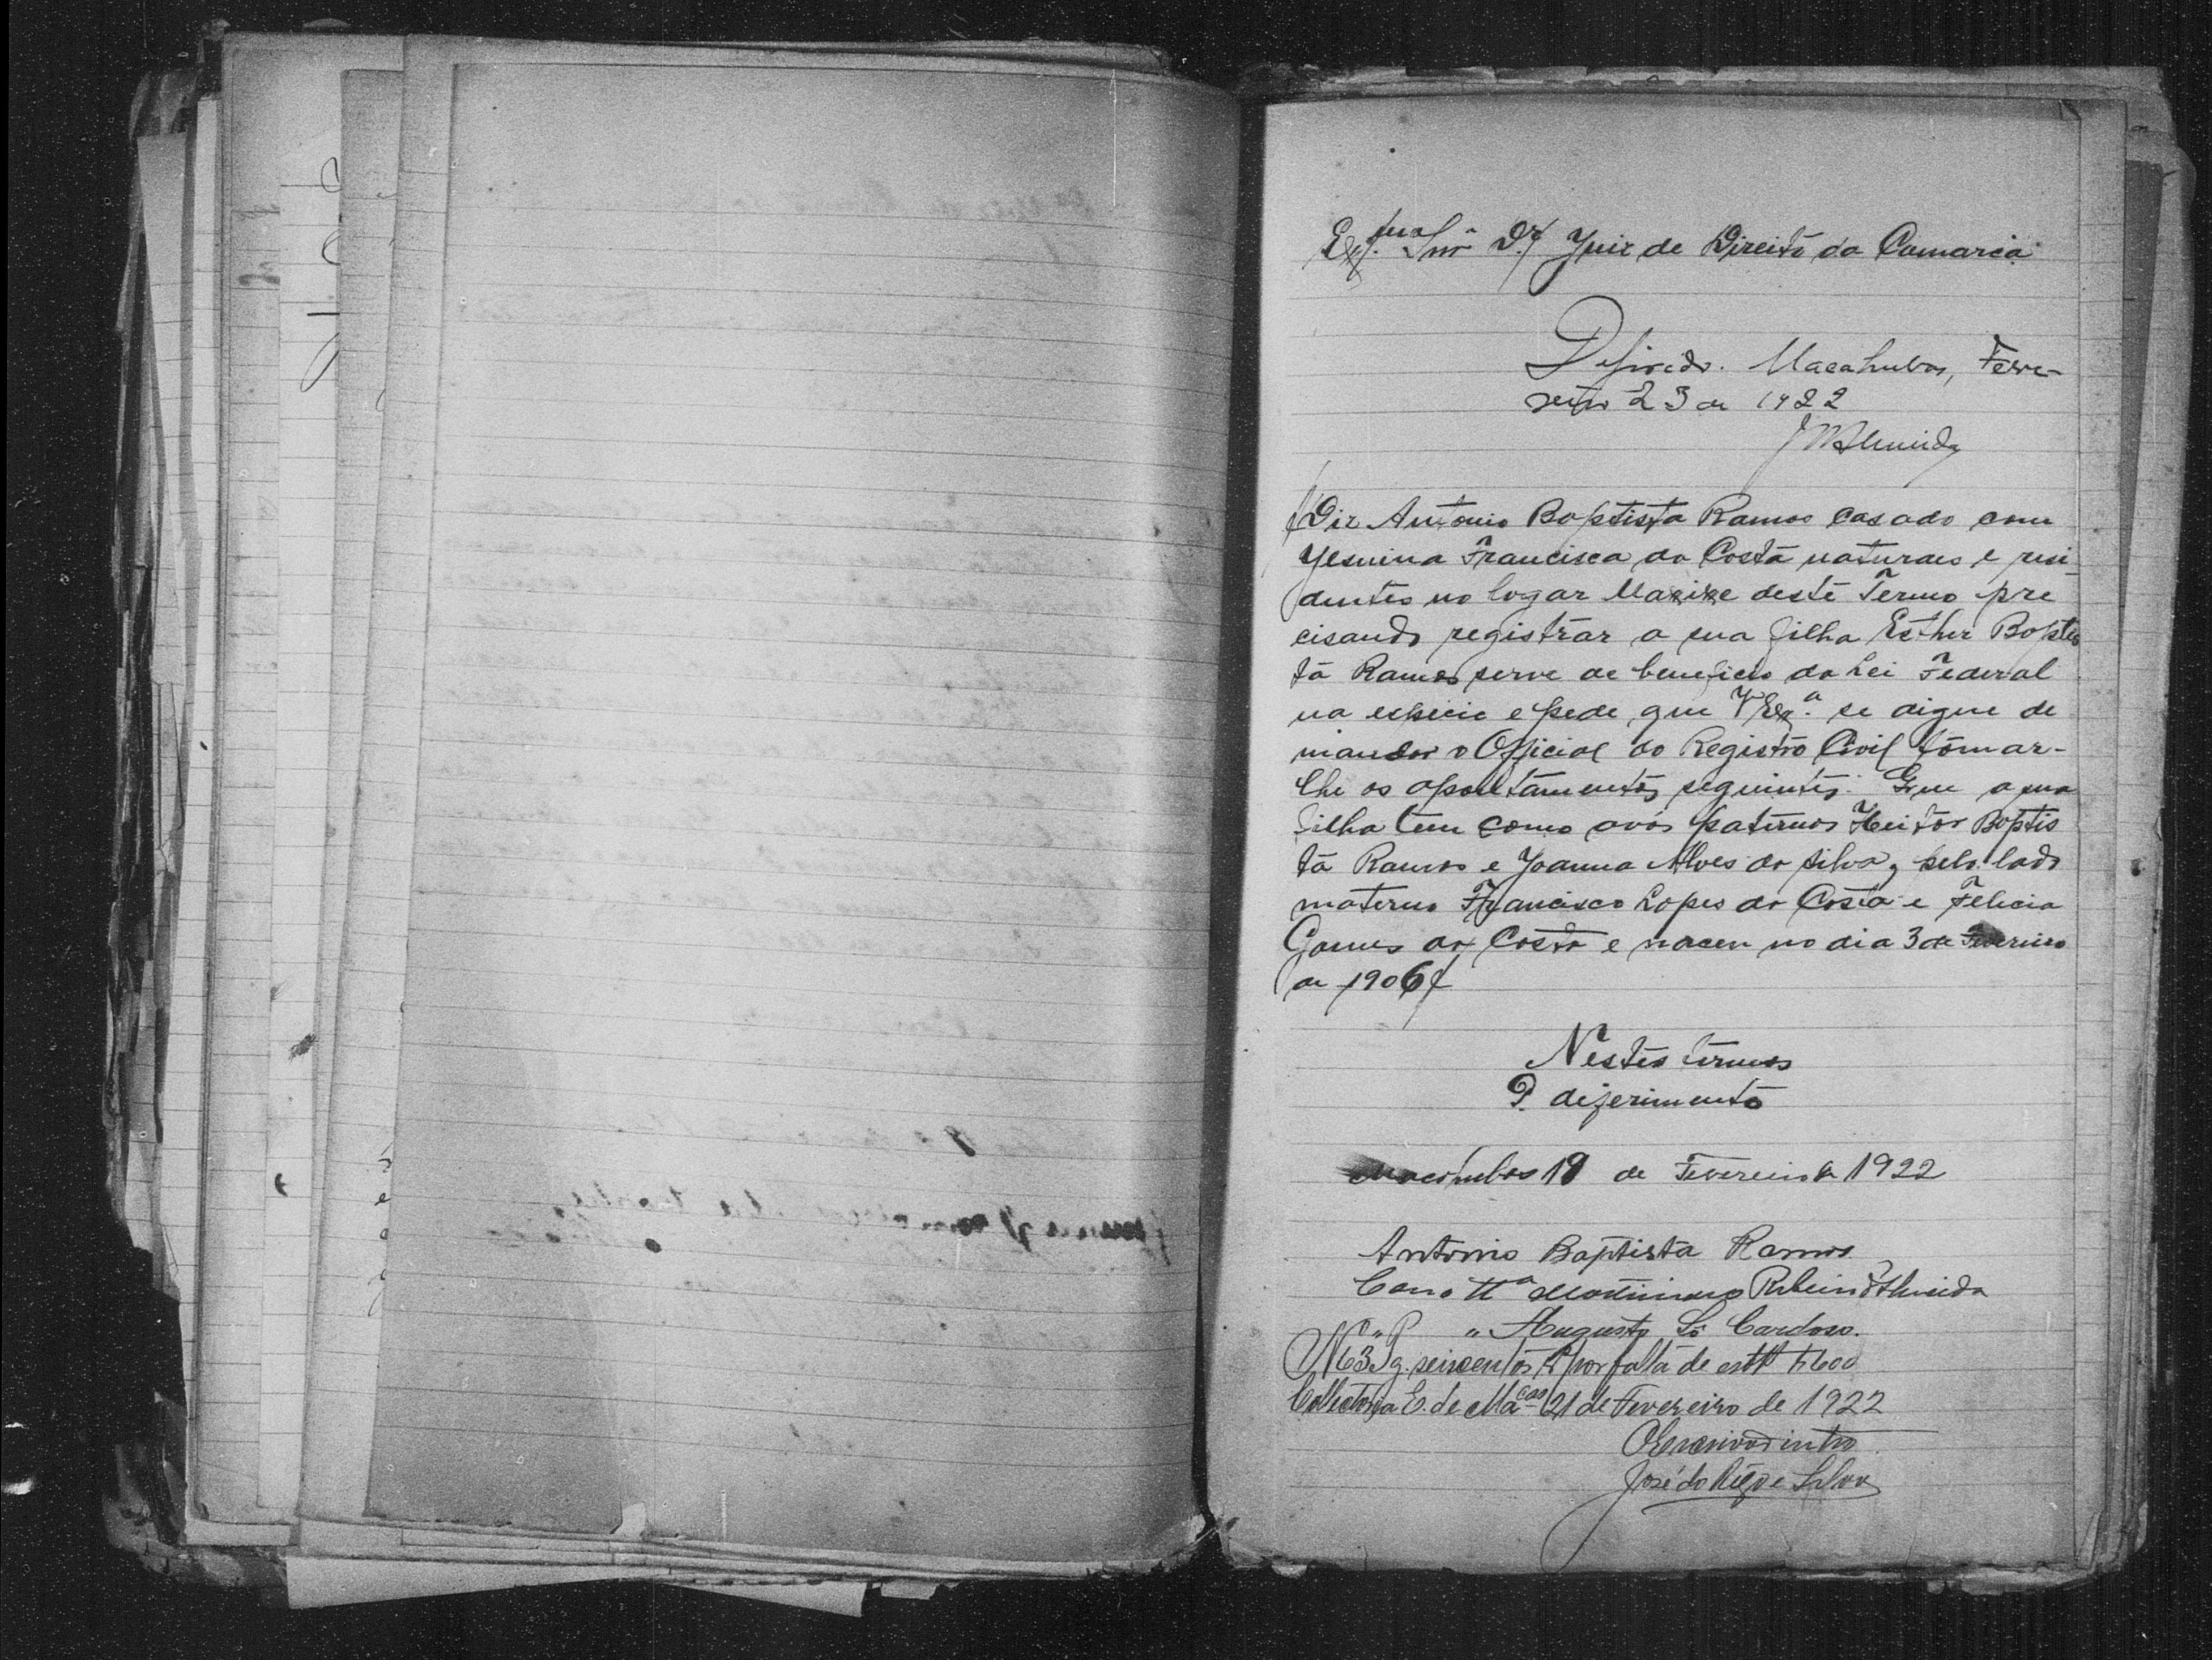 Exmo. Snr. Dr. Juiz de Direito da Comarca
Deferido. Macahubas, Feve-
reiro 23 de 1922
J M Almeida
Diz Antonio Baptista Ramos casado com
Jesuina Francisca da Costa naturaes e resi-
dentes no logar Maxixe deste Termo pre
cisando registrar a sua filha Esther Baptis
ta Ramos serve de beneficio da Lei Federal
na especie e pede que V Exa. se digne de
mandar o Official do Registro Civil tomar-
lhe os apontamentos seguintes: Que a sua
filha tem como avós paternos Heitor Baptis
ta Ramos e Joanna Alves da Silva, pelo lado
materno Francisco Lopes da Costa e Felicia
Gomes da Costa e naceu no dia 3 de Fevereiro
de 1906
Nestes termos
P. deferimento
Macahubas 19 de Fevereiro de 1922
Antonio Baptista Ramos
Como tta Ribeiro d'Almeida
" " Augusto Sá Cardoso.
N 63 Pg. seiscentos rs por falta de estplha $600
Collectoria E. de Macas 21 de Fevereiro de 1922
O Escrivão intro
José do Rego e Silva